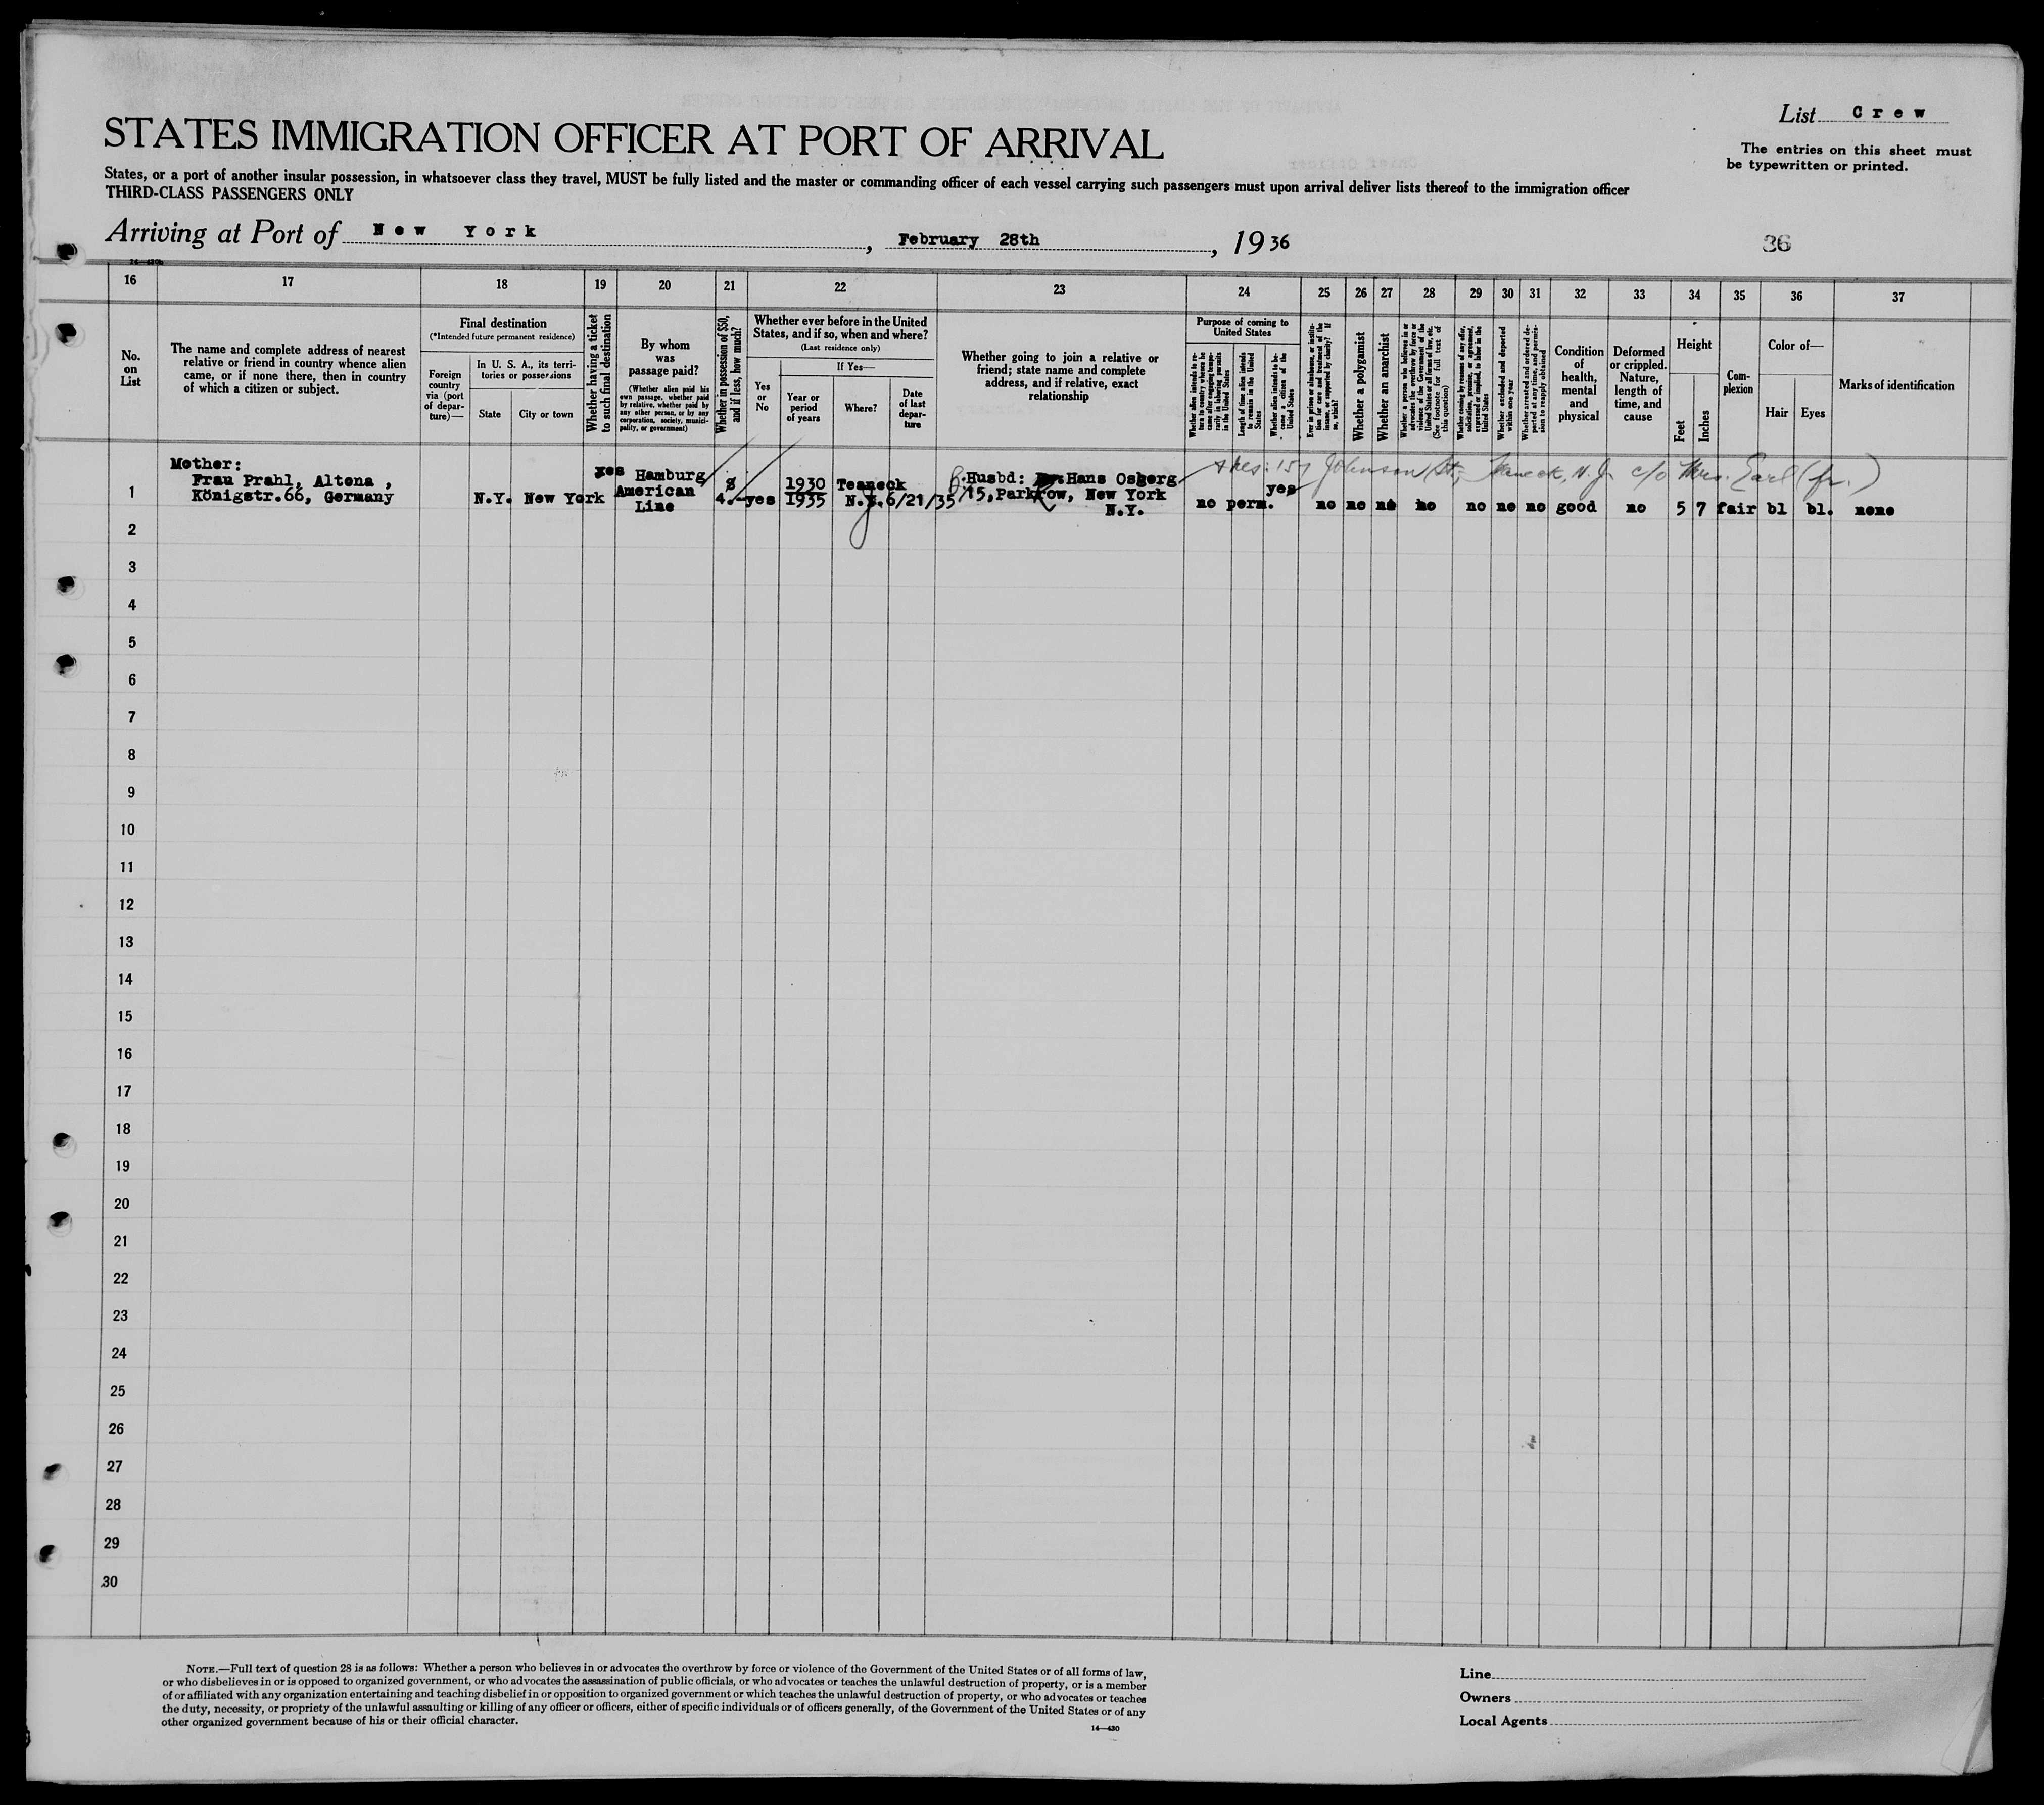 List Crew
STATES IMMIGRATION OFFICER AT PORT OF ARRIVAL
The entries on this sheet must
be typewritten or printed.
States, or a port of another insular possession, in whatsoever class they travel, MUST be fully listed and the master or commanding officer of each vessel carrying such passengers must upon arrival deliver lists thereof to the immigration officer
THIRD-CLASS PASSENGERS ONLY
Arriving at Port of New York, February 28th, 1936
36
16 17 18 19 20 21 22 23 24 25 26 27 28 29 30 31 32 33 34 35 36 37
No.
on
List
The name and complete address of nearest
relative or friend in country whence alien
came, or if none there, then in country
of which a citizen or subject.
Final destination
(*Intended future permanent residence)
Foreign
country
via (port
of depar-
ture)—
In U. S. A., its terri-
tories or possessions
State
City or town
Whether having a ticket
to such final destination
By whom
was
passage paid?
(Whether alien paid his
own passage, whether paid
by relative, whether paid by
any other person, or by any
corporation, society, munici-
pality, or government)
Whether in possession of $50,
and if less, how much?
Whether ever before in the United
States, and if so, when and where?
(Last residence only)
Yes
or
No
If Yes—
Year or
period
of years
Where?
Date
of last
depar-
ture
Whether going to join a relative or
friend; state name and complete
address, and if relative, exact
relationship
Purpose of coming to
United States
Whether alien intends to re-
turn to country whence he
came after engaging tempo-
rarily in laboring pursuits
in the United States
Length of time alien intends
to remain in the United
States
Whether alien intends to be-
come a citizen of the
United States
Ever in prison or almshouse, or institu-
tion for care and treatment of the
insane, or supported by charity? If
so, which?
Whether a polygamist
Whether an anarchist
Whether a person who believes in or
advocates the overthrow by force or
violence of the Government of the
United States or all forms of law, etc.
(See footnote for full text of
this question)
Whether coming by reason of any offer,
solicitation, promise, or agreement,
expressed or implied, to labor in the
United States
Whether excluded and deported
within one year
Whether arrested and ordered de-
ported at any time, and permis-
sion to reapply obtained
Condition
of
health,
mental
and
physical
Deformed
or crippled.
Nature,
length of
time, and
cause
Height
Feet
Inches
Com-
plexion
Color of—
Hair
Eyes
Marks of identification
Mother:
Frau Prahl, Altona,
Königstr.66, Germany
1
N.Y. New York
yes
Hamburg
American
Line
$
4.-
yes
1930
1935
Teaneck
N.J.
6/21/35
Husbd: Hans Osberg
15, Parkrow, New York
N.Y.
157 Johnson St., Teaneck, N.J. c/o Mrs. Earl (fr.)
no perm. yes
no no no no no no no good no 5 7 fair bl bl. none
2
3
4
5
6
7
8
9
10
11
12
13
14
15
16
17
18
19
20
21
22
23
24
25
26
27
28
29
30
NOTE.—Full text of question 28 is as follows: Whether a person who believes in or advocates the overthrow by force or violence of the Government of the United States or of all forms of law,
or who disbelieves in or is opposed to organized government, or who advocates the assassination of public officials, or who advocates or teaches the unlawful destruction of property, or is a member
of or affiliated with any organization entertaining and teaching disbelief in or opposition to organized government or which teaches the unlawful destruction of property, or who advocates or teaches
the duty, necessity, or propriety of the unlawful assaulting or killing of any officer or officers, either of specific individuals or of officers generally, of the Government of the United States or of any
other organized government because of his or their official character.
14—430
Line
Owners
Local Agents